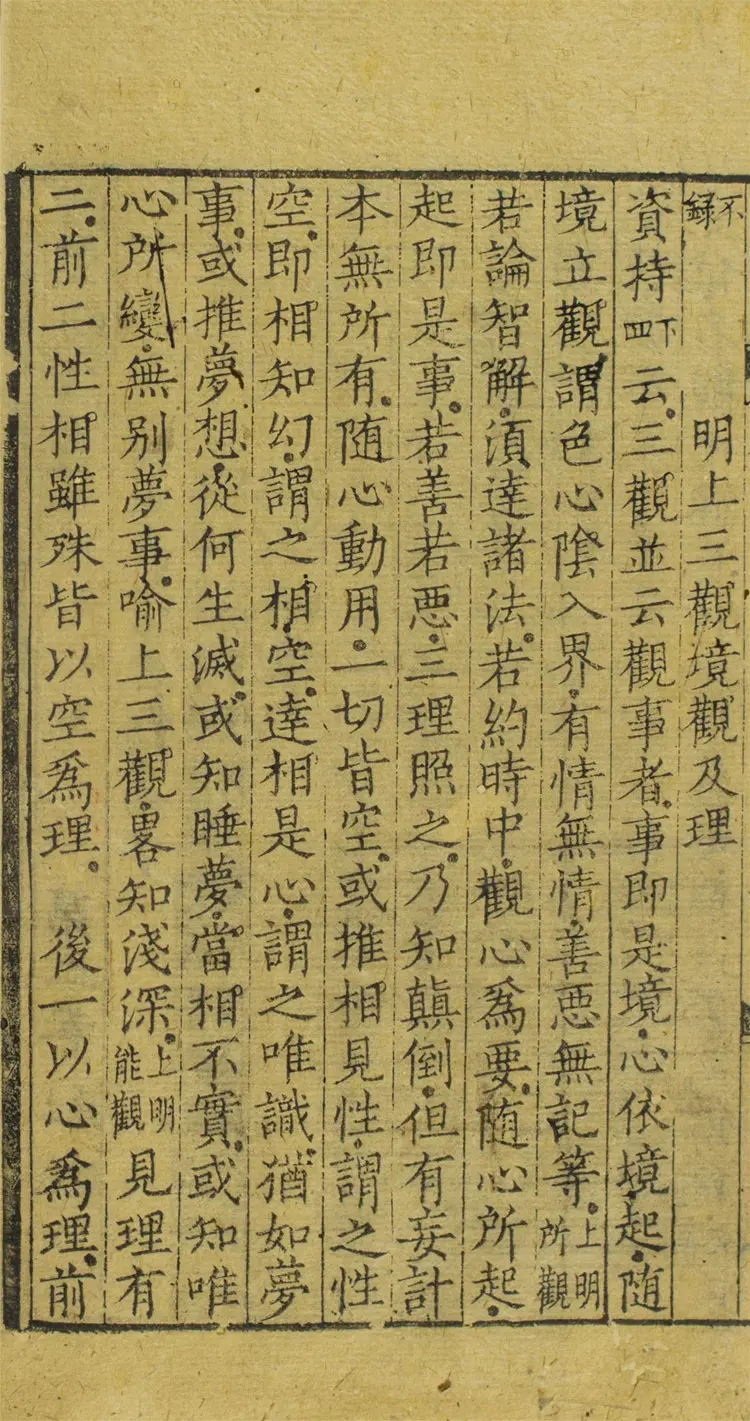 不錄
明上三觀境觀及理
資持下四云。三觀並云觀事者。事即是境。心依境起。随
境立觀。謂色心陰入界。有情無情。善惡無記等。上明所觀
若論智解。須達諸法。若約時中。觀心為要。随心所起。
起即是事。若善若惡。三理照之。乃知顛倒。但有妄計
本無所有。随心動用。一切皆空。或推相見性。謂之性
空。即相知幻。謂之相空。達相是心。謂之唯識。猶如夢
事。或推夢想。從何生滅。或知睡夢。當相不實。或知唯
心所變。無別夢事。喻上三觀。畧知淺深。上明能觀見理有
二。前二性相雖殊皆以空爲理。後一以心爲理。前